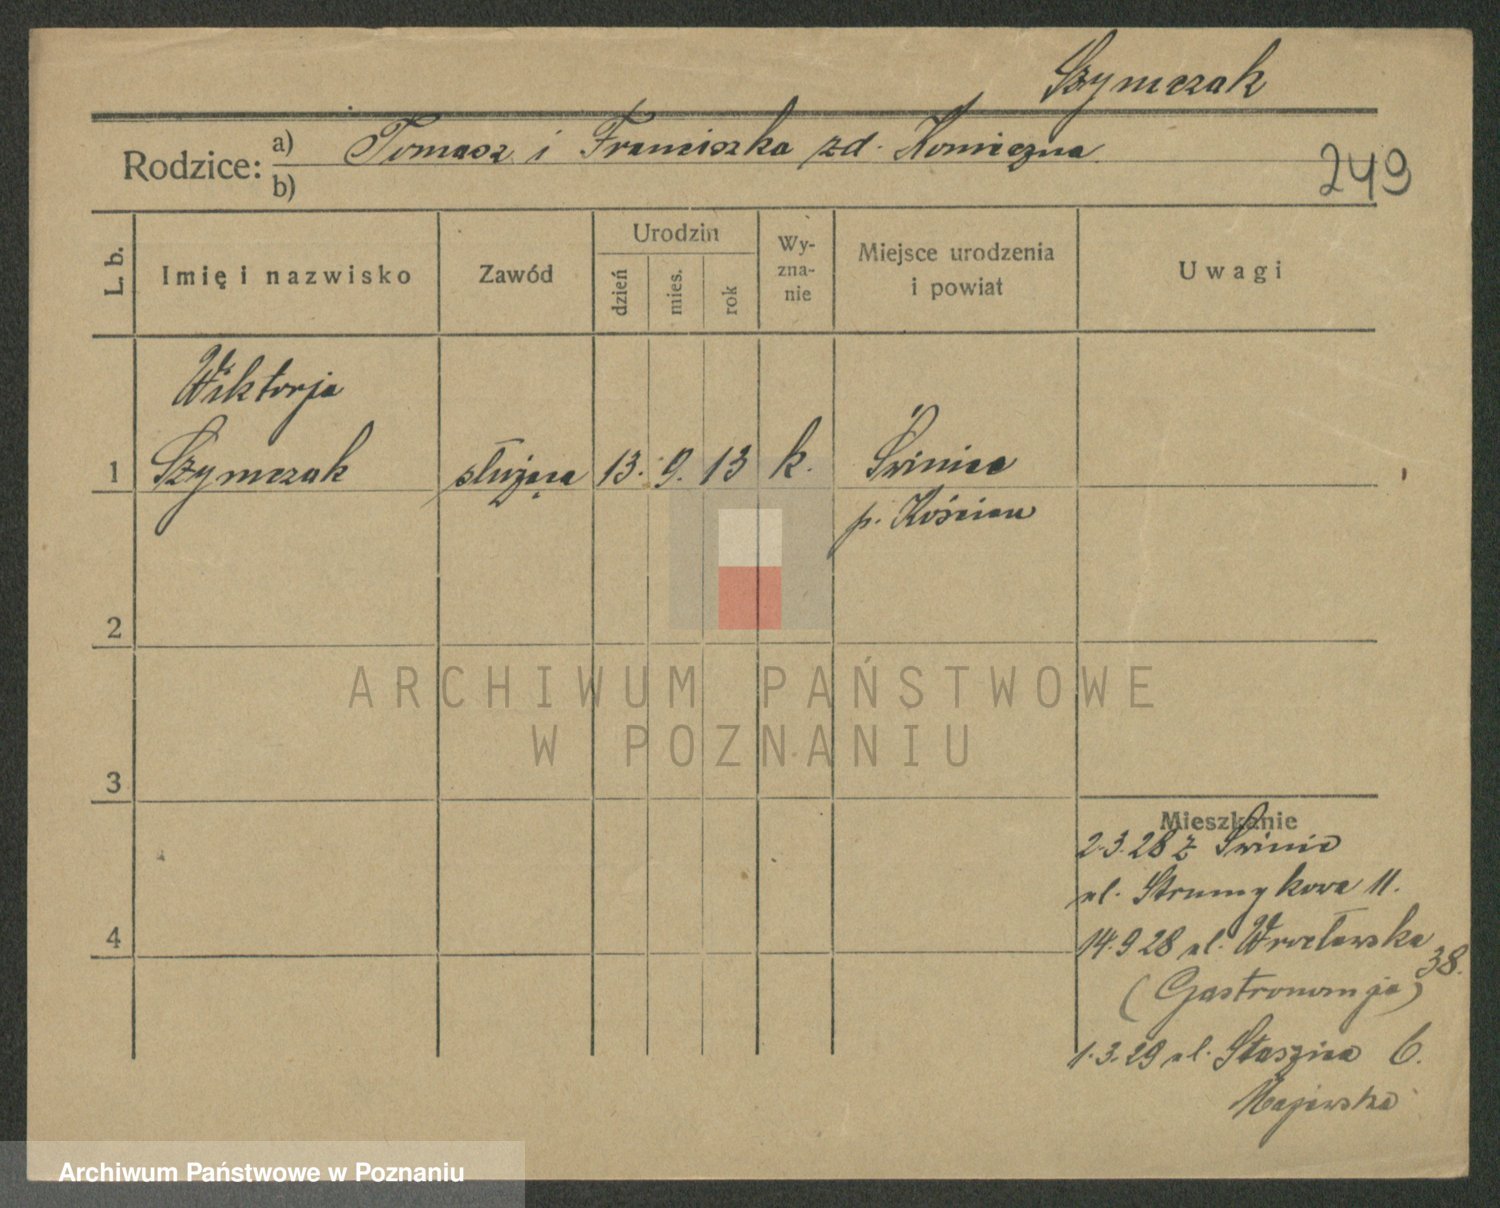 Szymczak
Rodzice: a) Tomasz i Franciszka zd. Konieczna
b)
249
L. b.
Imię i nazwisko
Zawód
Urodzin
dzień
mies.
rok
Wy-
zna-
nie
Miejsce urodzenia
i powiat
Uwagi
Wiktorja
1 Szymczak służąca 13. 9. 13 k. Świniec
p. Kościan
2
3
4
ARCHIWUM PAŃSTWOWE
W POZNANIU
Mieszkanie
2.3.28 z Świnic
ul. Strumykowa 11.
14.9.28 ul. Wrocławska
38.
(Gastronomja)
1.3.29 ul. Staszica 6.
Majewska
Archiwum Państwowe w Poznaniu